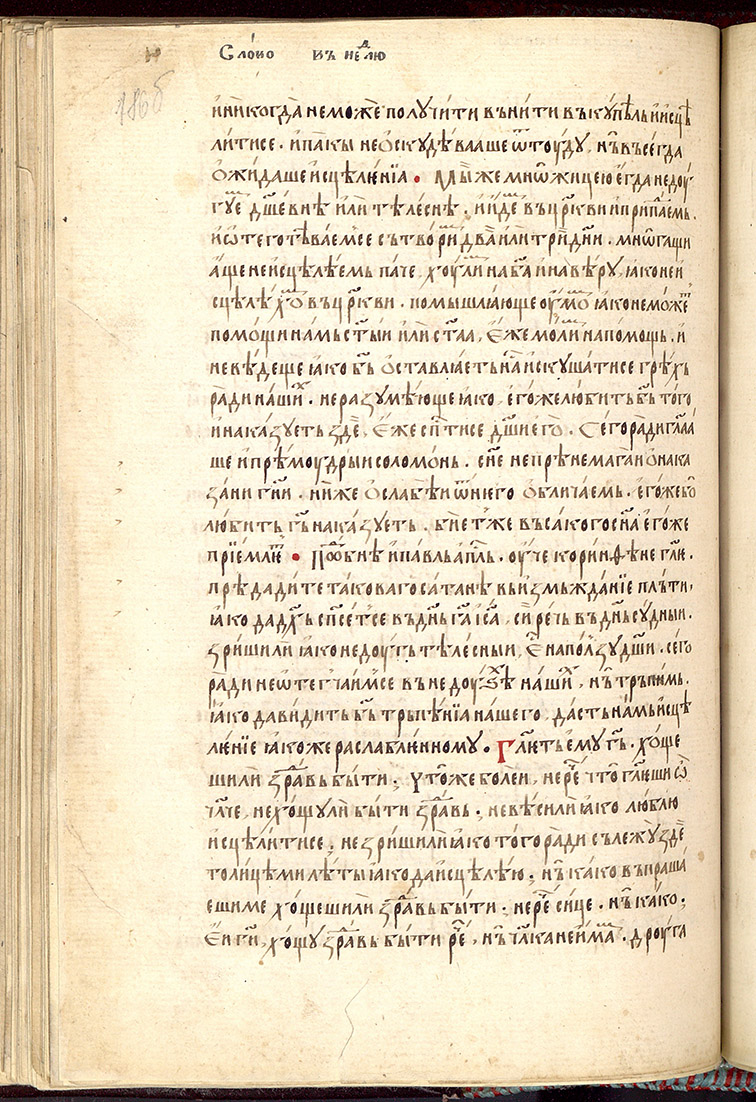 Сло́во въ неⷣлю
186б
и҆никогда̀ неможе полꙋчи́ти въни́ти въкꙋпѣ́ль и҆и҆сцѣ
ли́тисе. и҆па́кы не ѡ҆скꙋдѣ́вааше ѿтоу́дꙋ, нь̏ въсегда
ѻ҆жида́ше и҆сцѣле́нїа. Мы́ же мнѡ́жицею є҆гда̀ недоу́
гꙋеⷨ дш҃е́внѣ и҆ли̏ тѣле́снѣ. и҆ и҆́деⷨ въцр҃кви и҆припа́даемь.
и҆ ѡ҆теготѣва́емсе сътво́риⷨ два̀ и҆ли̏ три̏ дн҃и. мнѡ́гащи
а҆́ще не и҆сцѣлѣ́емь па́че, хоу́лиⷨ на ба҃ и҆ на вѣ́рꙋ, ꙗ҆ко не и҆
сцѣлѣ́хоⷨ въ цр҃кви. помышлꙗ́юще оу҆́моⷨ ꙗ҆́ко немо́жеⷮ
помо́щи на́мь ст҃ы́и и҆ли̏ ст҃аа, є҆́же мо́лиⷨ на по́мощь. и҆
невѣ́деще ꙗ҆́ко бь҃ ѻ҆ставлꙗ́еть на́ⷭ искꙋша́тисе грѣ́хь
ра́ди на́шиⷯ. не разꙋмѣ́юще ꙗ҆́ко, є҆го́же лю́бить бь҃ то́го
и҆ наказꙋеть здѐ, є҆́же сп҃тисе дш҃и є҆го̀. Сего̀ ра́ди гл҃аа
ше и҆ прѣмоу́дрыи соломо́нь. сн҃е не прѣнемага́и ѻ҆ нака
за́ни гн҃и. ни́же ѻ҆слабѣ́и ѿ него̀ ѻ҆блича́емь. є҆го́же бо
лю́бить гь҃ наказꙋеть. бїе́т же въса́кого сн҃а є҆го́же
прїе́млеⷮ. Подо́бнѣ и҆ па́вль а҆пⷭ҇ль. оу҆́че коринѳѣ́не гл҃е.
прѣдади́те такова́го сатанѣ̀ въ и҆змьжда́нїе плъ́ти,
ꙗ҆́ко да дх҃ь сп҃се́тсе въ дн҃ь га҃ і҆с҃а, си́ рѣчь въ дн҃ь сꙋ́дныи.
зри́ши ли ꙗ҆́ко недоу́гь тѣле́сныи, є҆́ⷭ на по́лзꙋ дш҃и. сего̀
ра́ди не ѡ҆тегча́имсе въ недоу́зѣⷯ на́шиⷯ, нь̏ тръпи́мь.
ꙗ҆́ко да ви́дить бь҃ тръпе́нїа на́шего, да́сть на́мь и҆сцѣ
ле́нїе ꙗ҆́коже расла́бленномꙋ. Гл҃еть є҆мꙋ̀ гь҃. хо́ще
ши ли здра́вь бы́ти; что́же боле́и, не реⷱ҇ что̀ гл҃еши ѽ
чл҃че, не хощꙋ̀ ли бы́ти здра́вь; не вѣ́си ли ꙗ҆́ко люблю̀
и҆сцѣли́тисе; не зри́ши ли ꙗ҆́ко то́го ра́ди съ лежꙋ̀ здѐ
толи́цѣми лѣ́ты ꙗ҆́ко да и҆сцѣлѣ́ю; нь̏ ка́ко въпраша́
еши ме хо́щеши ли здра́вь бы́ти; не реⷱ҇ си́це. нь̏ ка́ко;
Є҆́и гн҃, хощꙋ̀ здра́вь бы́ти реⷱ҇, нь̏ чл҃ка не и҆́маⷨ. дроуга